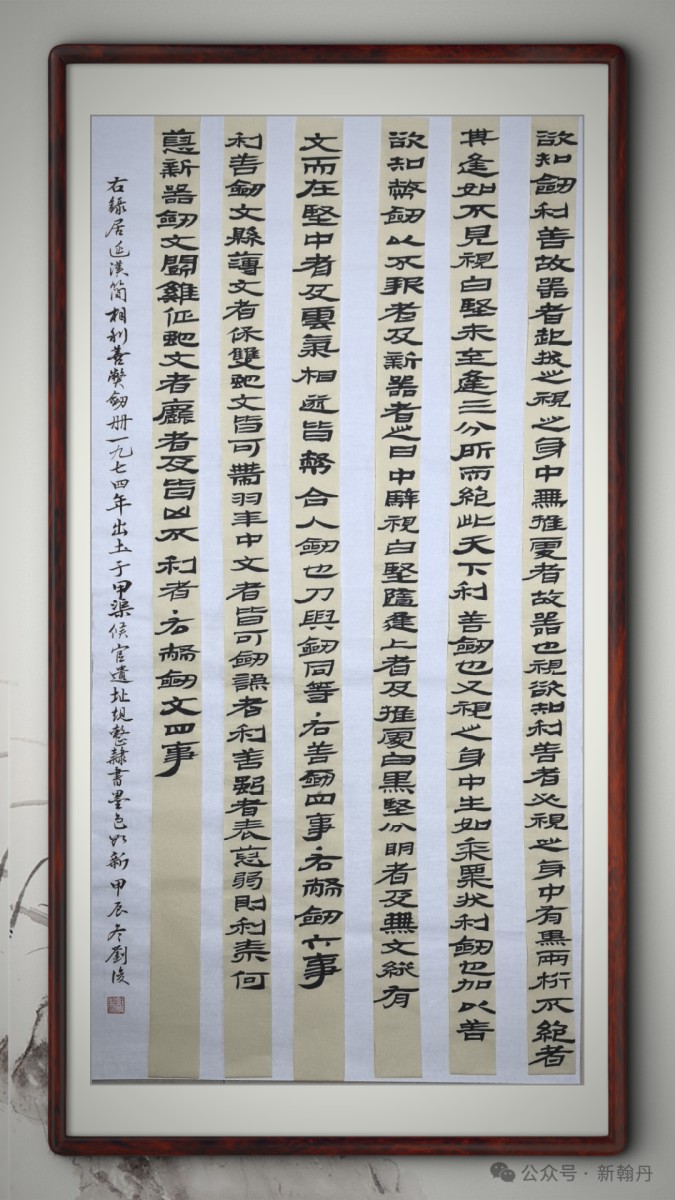 欲知劒利善故器者起拔之視之身中無推處者故器也視欲知利善者必視之身中有黑兩桁不絕者
其逢如不見視白堅未至逢三分所而絕此天下利善劒也又視之身中生如黍粟狀利劒也加以善
欲知幣劒以不報者及新器者之日中騂視白堅隨進上者及推處白黑堅分明者及無文縱有
文而在堅中者及雲氣相遂皆幣合人劒也刀與劒同等·右善劒四事·右幣劒六事
利善劒文縣薄文者保雙蛇文皆可帶羽圭中文者皆可劒謙者利善強者表恙弱則利柰何
恙新器劒文鬭雞佂蛇文者麤者及皆凶不利者·右幣劒文四事
右錄居延漢簡相利善弊劒冊一九七四年出土于甲渠候官遺址規整隸書墨色如新甲辰冬劉浚
公众号·新翰丹